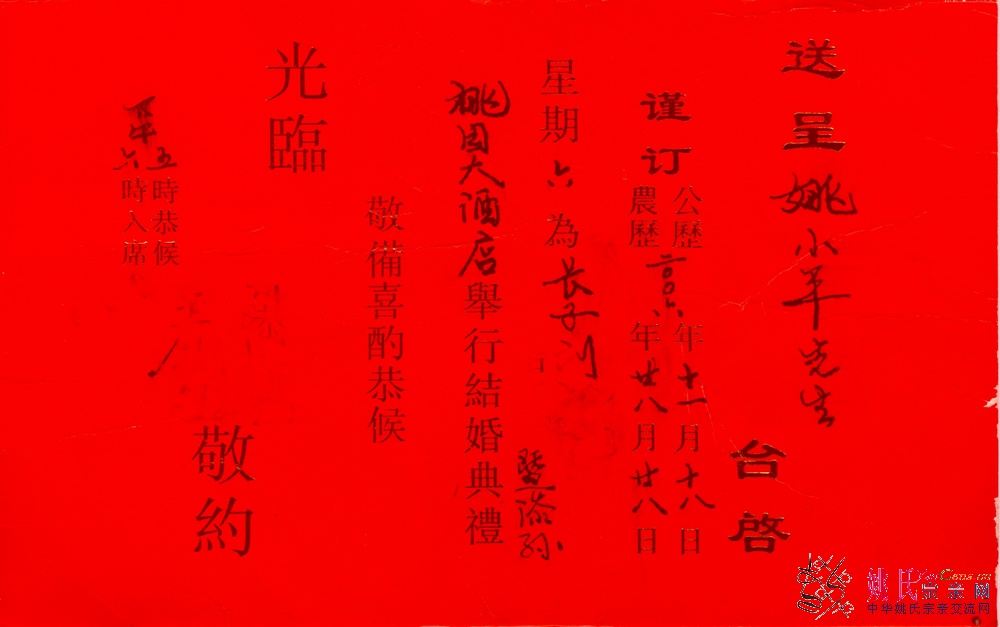 送呈姚小平先生
台啓
谨订
公歷
年十一月十八日
農歷
年廿八月廿八日
星期六為長子
暨
孙
姚园大酒店舉行結婚典禮
敬備喜酌恭候
光臨
敬約
五時恭候
六時入席
姚氏宗亲网
YaoGens.cn
中华姚氏宗亲交流网